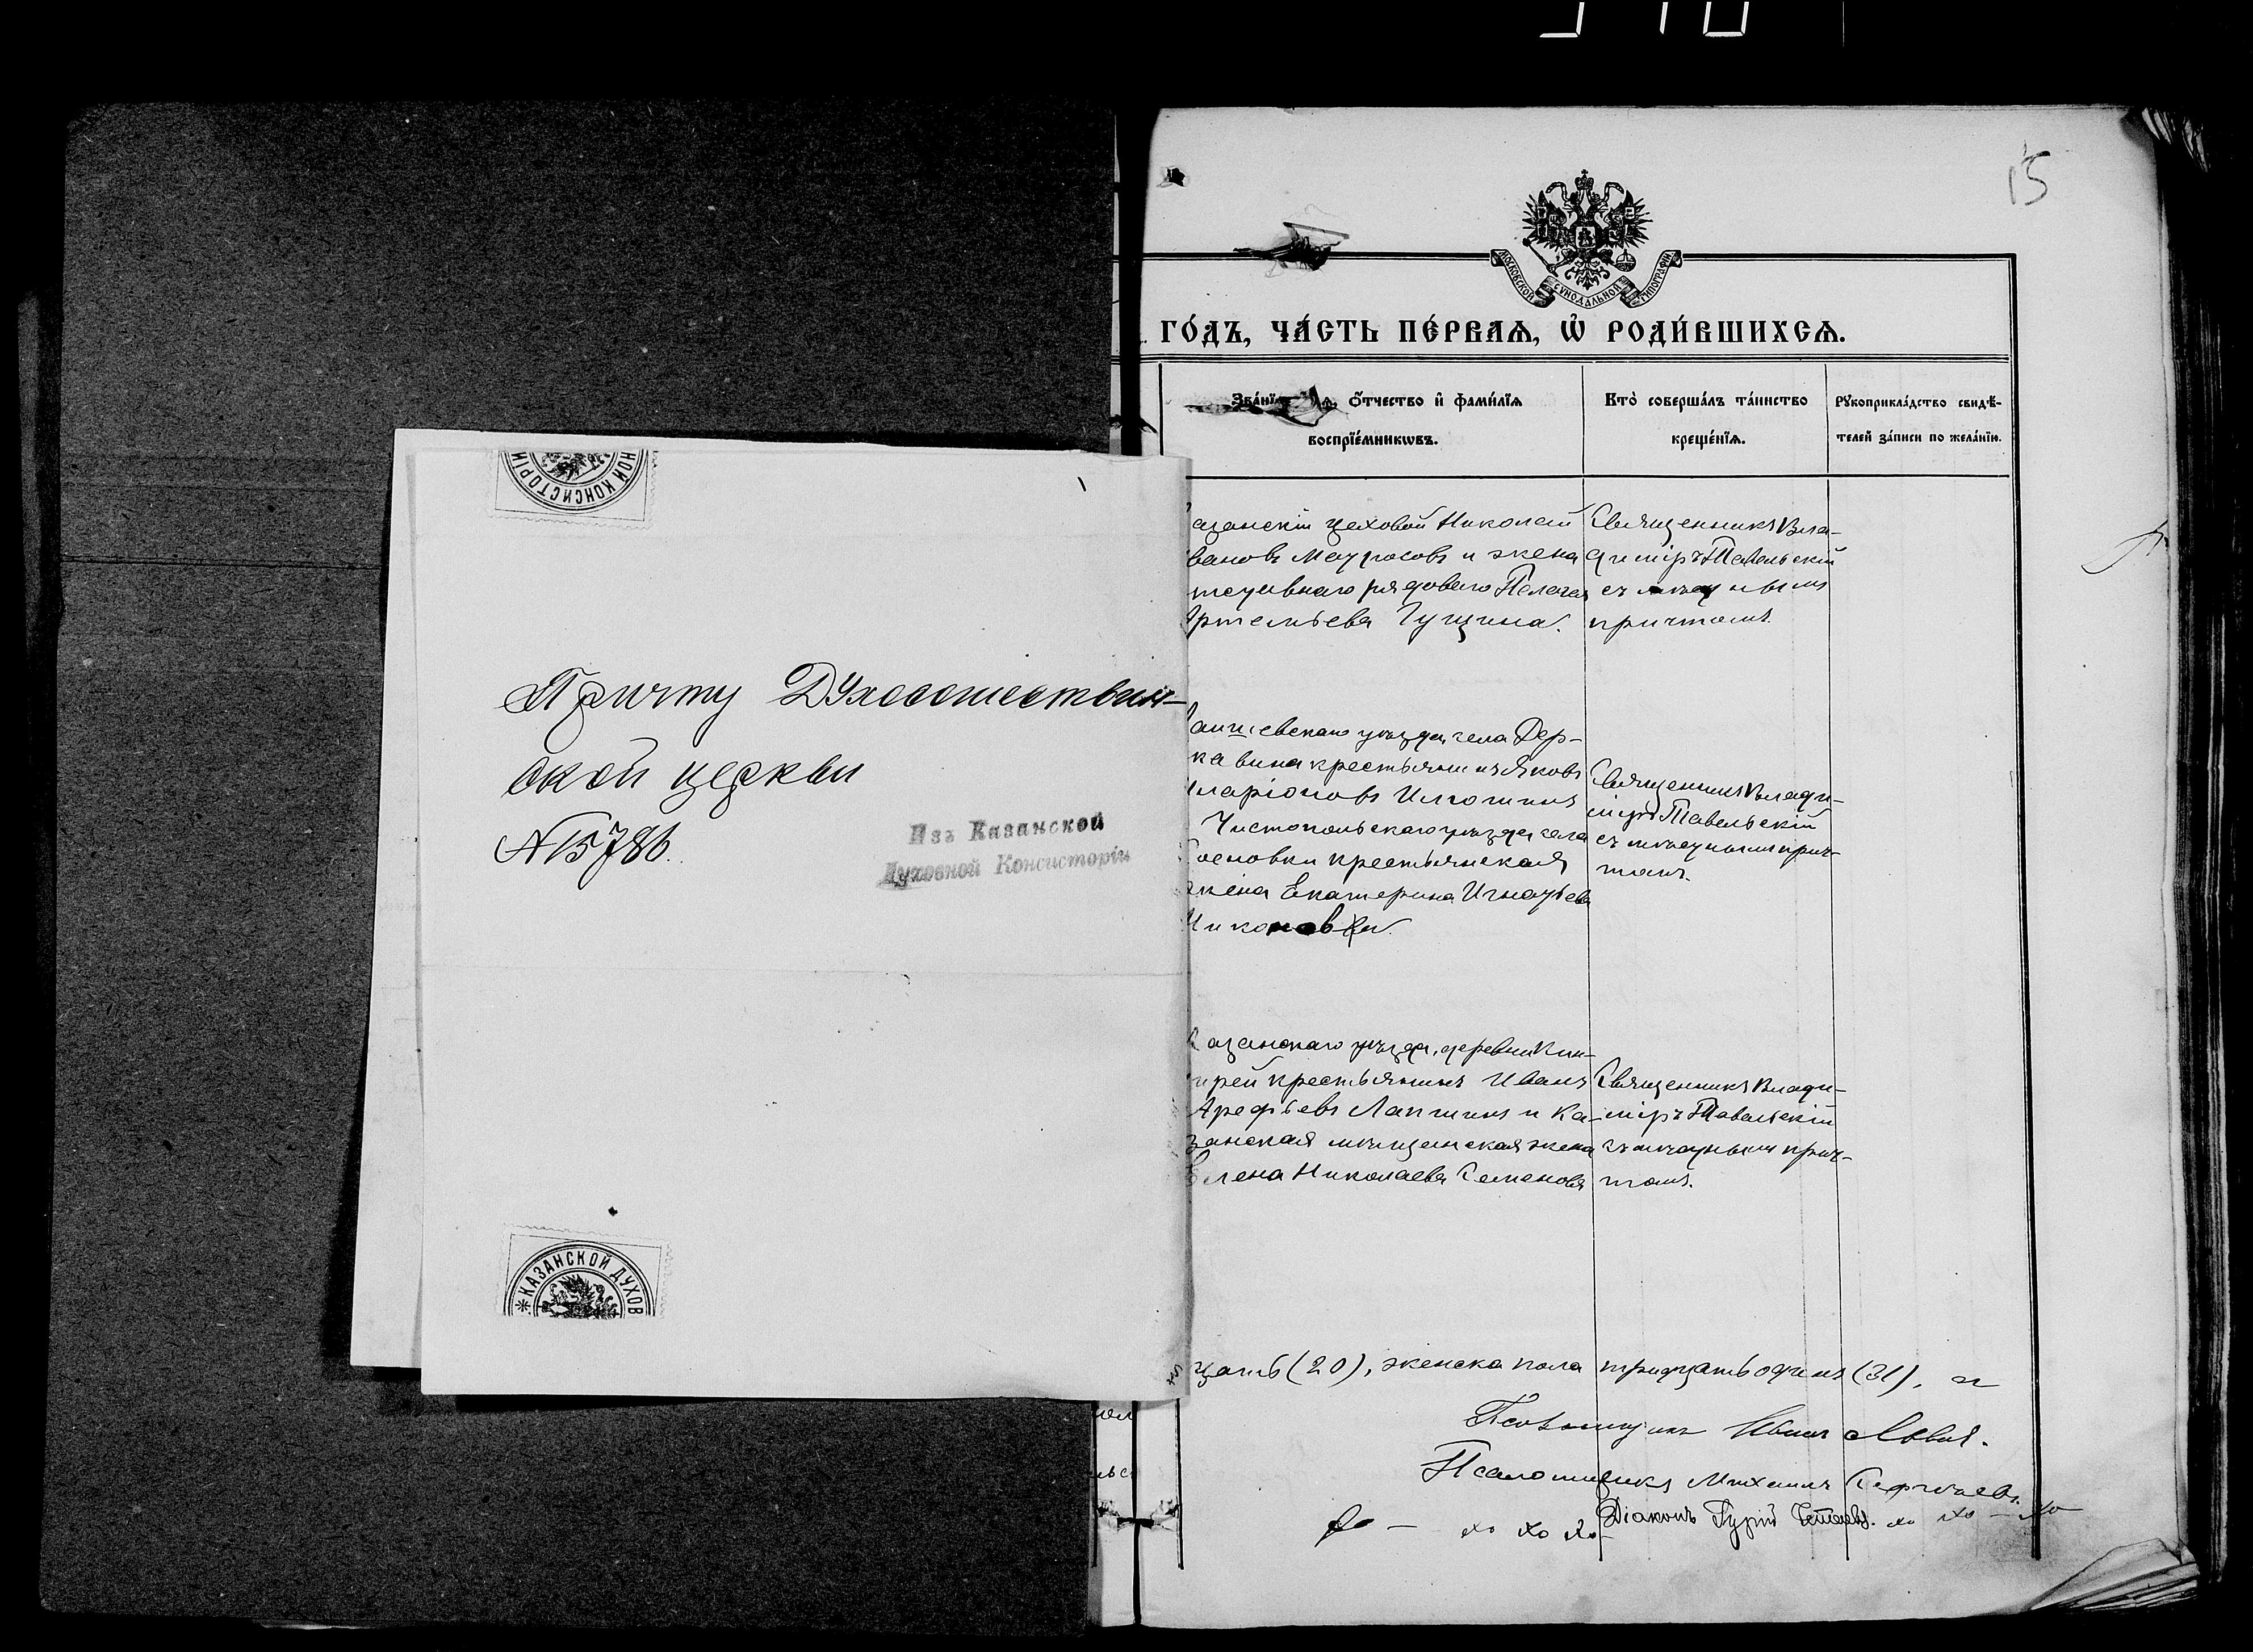 15
МОСКОВСКОЙ СУНОДАЛЬНОЙ ТИПОГРАФІИ
ГО́ДЪ, ЧА́СТЬ ПЕ́РВАѦ, Ѡ҆ РОДИ́ВШИХСѦ.
Зва́нїе, и҆́мѧ, ѻ҆́тчество и҆ фами́лїѧ
воспрїе́мникѡвъ.
Кто̀ соверша́лъ та́инство
креще́нїѧ.
Рꙋкоприкла́дство свидѣ́-
телей за́писи по жела́нїю.
азанскій цеховой Николай
вановъ и жена
рядового Пелагея
ртемьева Гущина.
Священникъ Вла-
диміръ Павельскій
съ мѣстнымъ
причтомъ.
уѣзда, села Дер-
жавина крестьянинъ Яковъ
ларіоновъ Илюшинъ
Чистопольскаго уѣзда села
основки крестьянская
жена Екатерина Игнатьева
Никонова.
Священникъ Влади-
міръ Павельскій
съ мѣстнымъ прич-
томъ.
азанскаго уѣзда, деревни Кин-
крестьянинъ Иванъ
Арефьевъ Лапшинъ и Ка-
занская мѣщанская жена
Елена Николаева Семенова
Священникъ Влади-
міръ Павельскій
съ мѣстнымъ прич-
томъ.
цать (20), женска пола тридцать одинъ (31), а
Псаломщикъ Иванъ
Псаломщикъ Михаилъ
Діаконъ Гурій
НОЙ КОНСИСТОРІИ
Причту Духосошествен-
ской церкви
№ 15786.
Изъ Казанской
Духовной Консисторіи
КАЗАНСКОЙ ДУХОВ